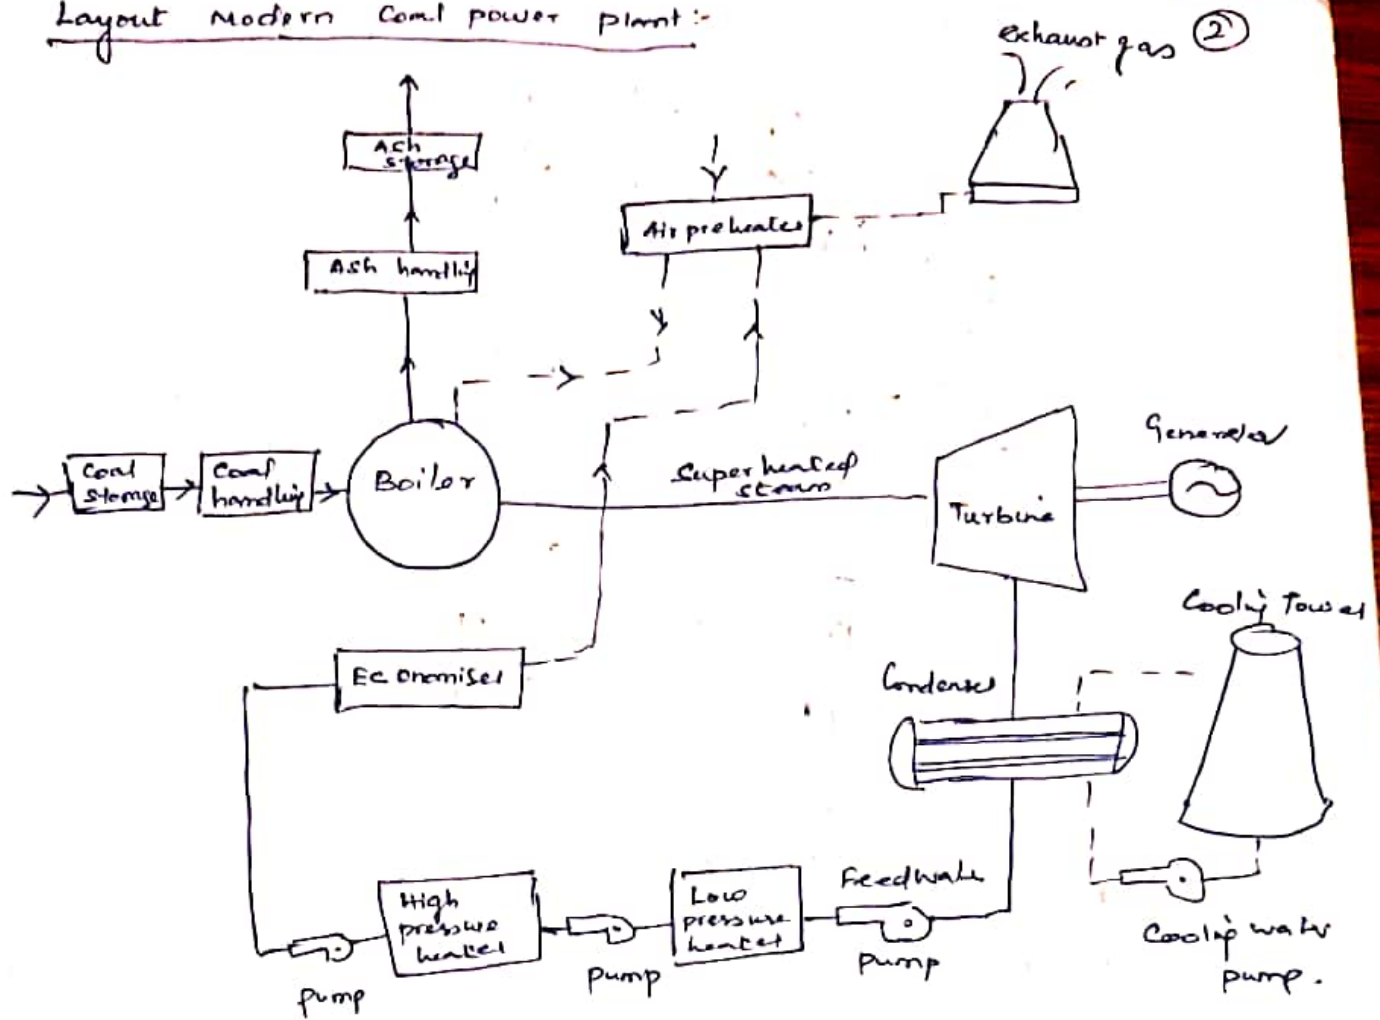 Layout Modern Coal power plant :-
exhaust gas
2
Ash
storage
Air preheater
Ash handling
Generator
Coal
storage
Coal
handling
Boiler
Superheated
steam
Turbine
Cooling Tower
Economiser
Condenser
High
pressure
heater
Low
pressure
heater
Feedwater
pump
pump
pump
Cooling water
pump.